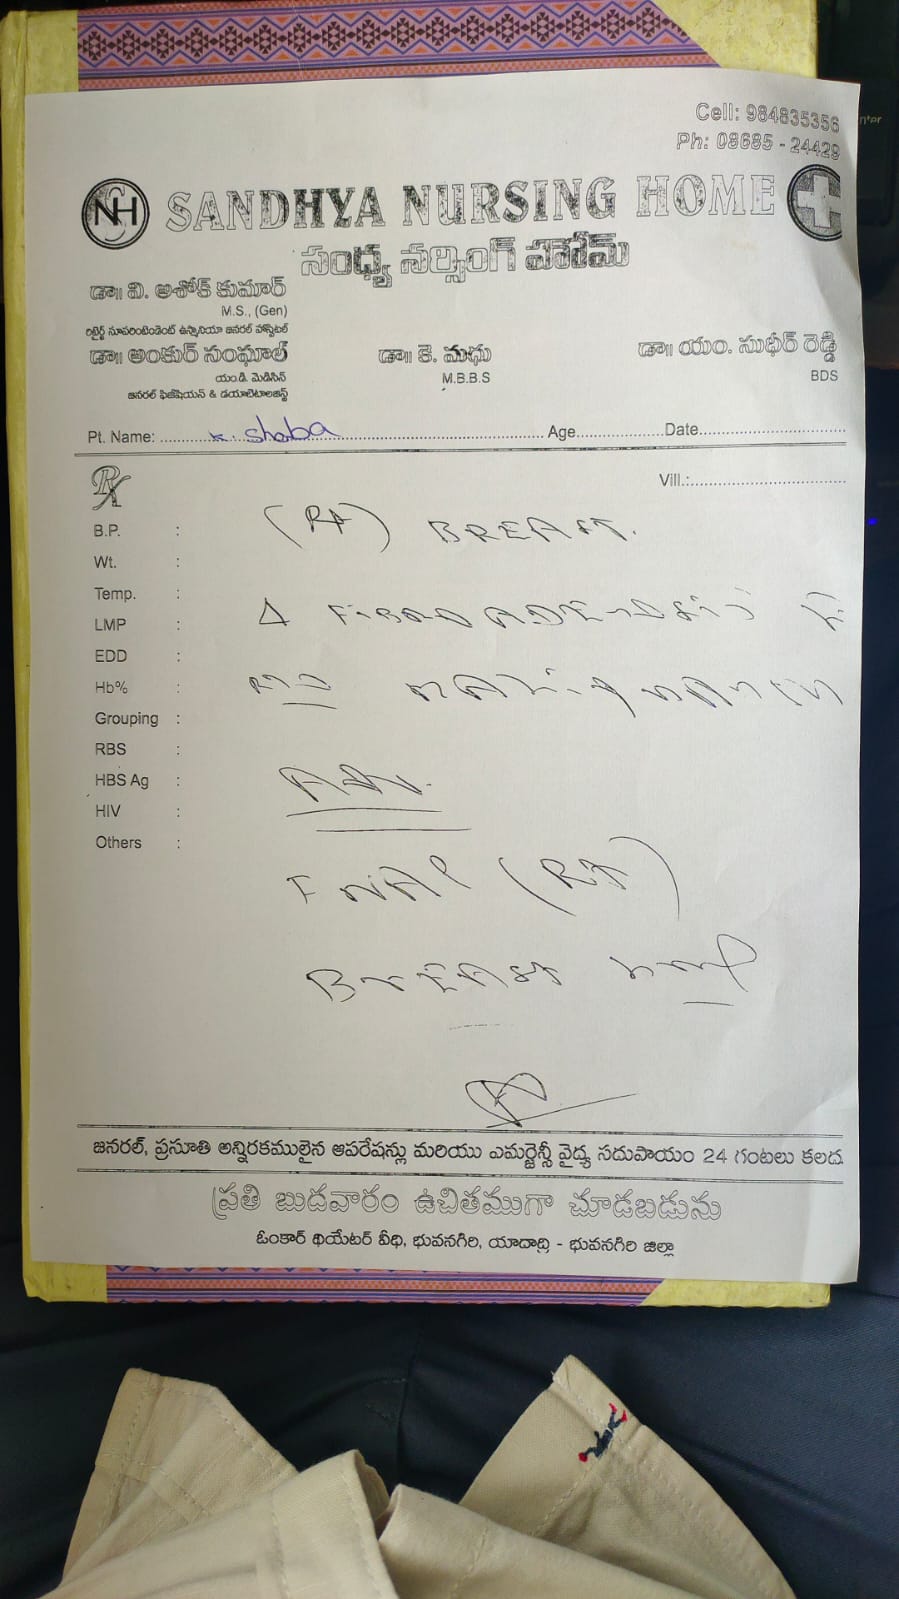 Cell: 984835356
Ph: 08685 - 24429
NH SANDHYA NURSING HOME
సంధ్య నర్సింగ్ హోమ్
డా॥ వి. అశోక్ కుమార్
M.S., (Gen)
రిటైర్డ్ సూపరింటెండెంట్ ఉస్మానియా జనరల్ హాస్పిటల్
డా॥ అంకుర్ సంఘాల్ డా॥ కె. మధు డా॥ యం. సుధీర్ రెడ్డి
యం.డి. మెడిసిన్ M.B.B.S BDS
జనరల్ ఫిజీషియన్ & డయాబెటాలజిస్ట్
Pt. Name: K. Shoba Age Date
Rx Vill.:
B.P. : (Rt) BREAST.
Wt. :
Temp. :
LMP : Δ
EDD :
Hb% :
Grouping :
RBS :
HBS Ag :
HIV :
Others :
FNAC (Rt)
BREAST
జనరల్, ప్రసూతి అన్నిరకములైన ఆపరేషన్లు మరియు ఎమర్జెన్సీ వైద్య సదుపాయం 24 గంటలు కలదు
ప్రతి బుదవారం ఉచితముగా చూడబడును
ఓంకార్ థియేటర్ వీధి, భువనగిరి, యాదాద్రి - భువనగిరి జిల్లా